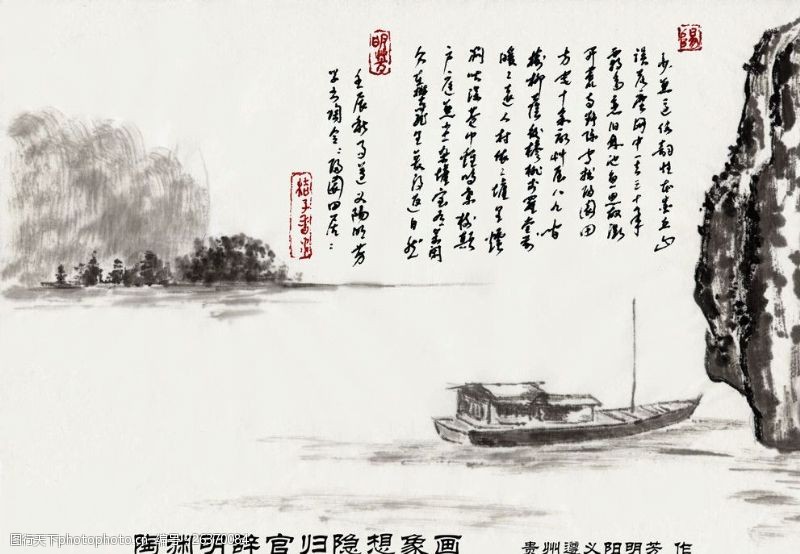 少無适俗韵性本爱丘山
误落尘网中一去三十年
羁鸟恋旧林池鱼思故渊
开荒南野际守拙归園田
方宅十余亩艸屋八九间
榆柳荫后檐桃李罗堂前
暧々远人村依々墟里煙
狗吠深巷中鸡鸣桑树颠
户庭無尘杂虚室有余闲
久在樊笼里復得返自然
壬辰秋月遵义阳明芳
明芳
陶渊明辞官归隐想象画
贵州遵义阳明芳 作
图行天下photophoto.cn 编号